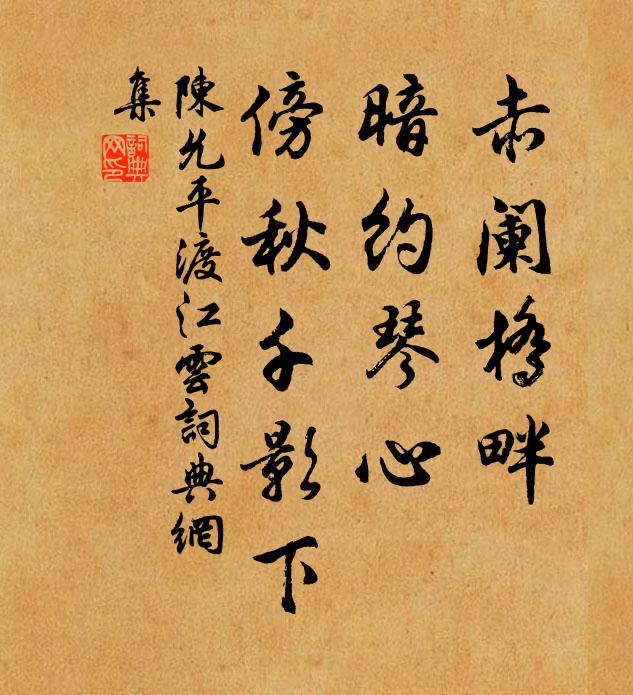 赤阑橋畔
暗約琴心
傍秋千影下
陳允平渡江雲詞典網
集
詞典
网印